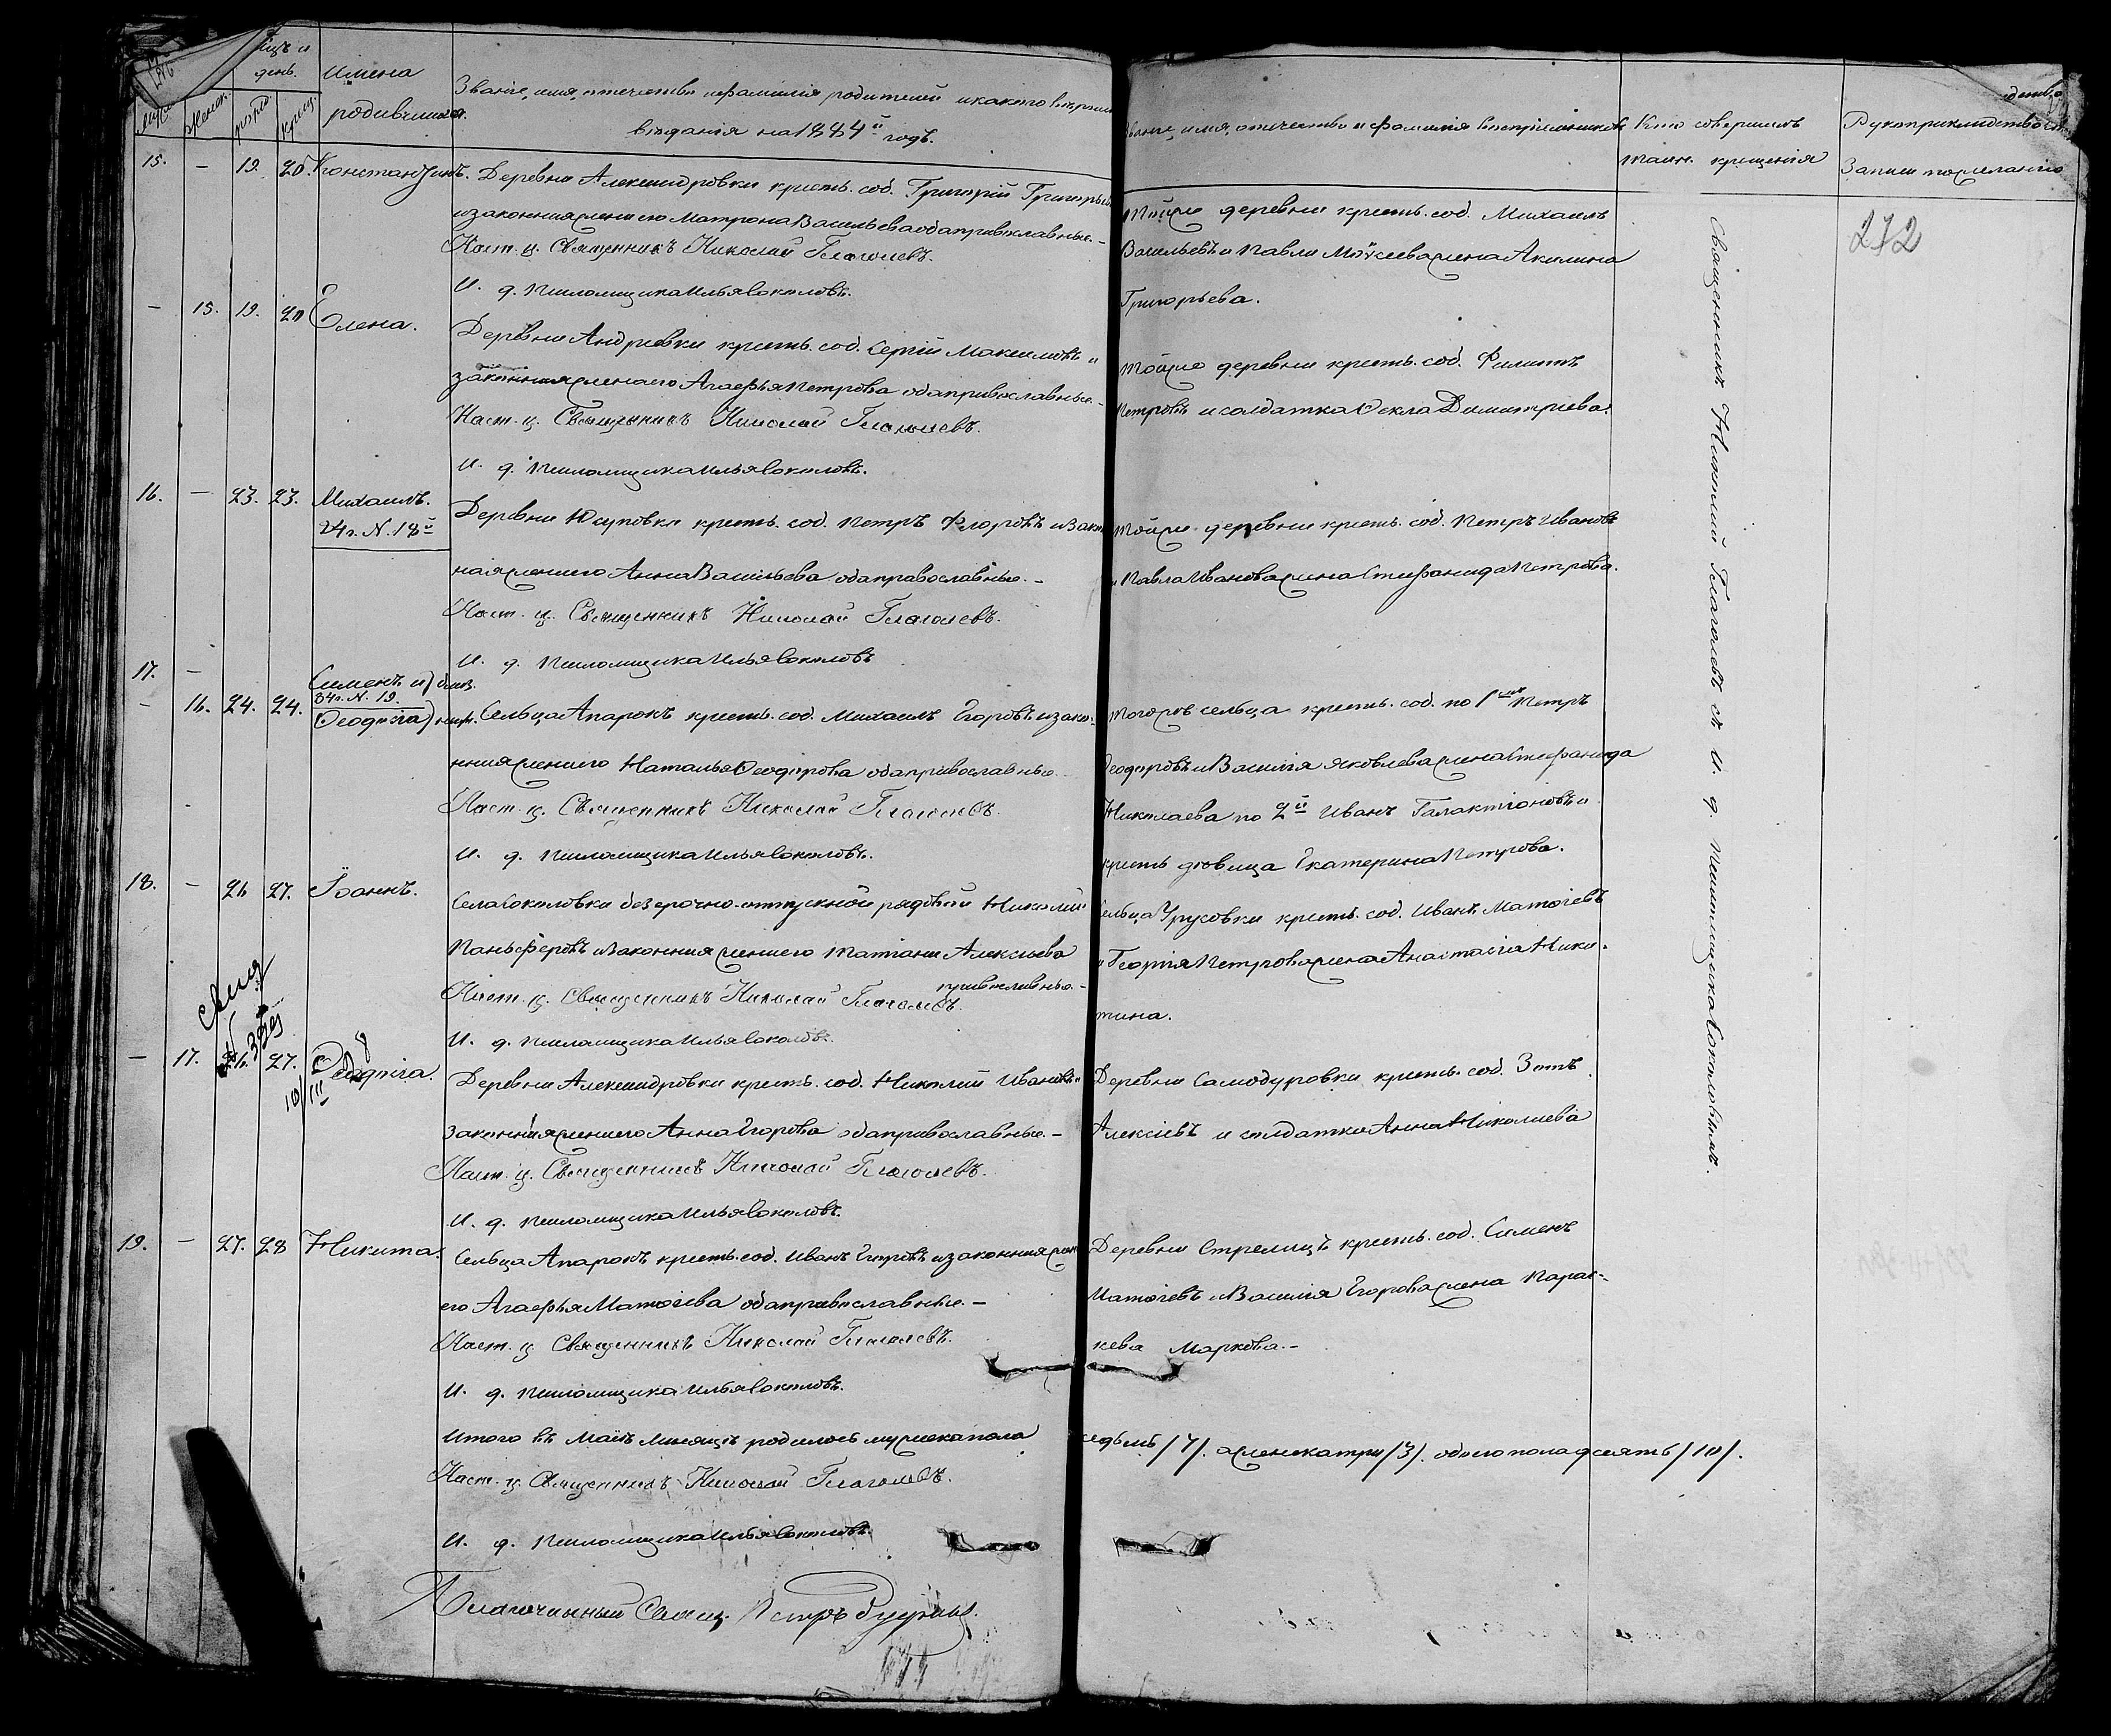 день.
Имена
родившихся.
Званіе, имя, отечество и фамилія родителей и какого вѣроис
вѣданія на 1884й годъ.
Званіе, имя, отечество и фамилія восприемниковъ
Кто совершалъ
таин. крещенія
Рукоприкладство
Записи по желанію
272
15. — 19. 20. Константинъ.
Деревни Александровки крестъ. соб. Григорій Григорьевъ
и законная жена его Матрона Васильева оба православные. –
Наст. ц. Священникъ Николай Глаголевъ.
И. д. псаломщика Илья Соколовъ.
Тойже деревни крестъ. соб. Михаилъ
Васильевъ и Павла Моѵсеева жена Акилина
Григорьева.
— 15. 19. 20 Елена.
Деревни Андревки крестъ. соб. Сергій Максимовъ и
законная жена его Агафья Петрова оба православные. –
Наст. ц. Священникъ Николай Глаголевъ.
И. д. псаломщика Илья Соколовъ.
Тойже деревни крестъ. соб. Филиппъ
Петровъ и солдатка Ѳекла Димитриева.
16. — 23. 23. Михаилъ.
24 г. N. 18й
Деревни Юсуповки крестъ. соб. Петръ Флоровъ и закон
ная жена его Анна Васильева оба православные. –
Наст. ц. Священникъ Николай Глаголевъ.
И. д. псаломщика Илья Соколовъ
Тойже деревни крестъ. соб. Петръ Ивановъ
и Павла Иванова жена Стефанида Петрова.
17. —
Симеонъ и близ.
34 г. N. 19.
— 16. 24. 24. Ѳеодосія нец.
Сельца Апарокъ крестъ. соб. Михаилъ Егоровъ и зако-
нная жена его Наталья Ѳеодорова оба православные.
Наст. ц. Священникъ Николай Глаголевъ.
И. д. псаломщика Илья Соколовъ.
Тогоже сельца крестъ. соб. по 1му Петръ
Ѳеодоровъ и Василія Яковлева жена Стефанида
Николаева по 2й Иванъ Галактіоновъ и
крестъ дѣвица Екатерина Петрова.
18. — 26 27. Іоаннъ.
Села Соколовки безсрочно-отпускной рядовой Николай
Паньферовъ и законная жена его Татіана Алексѣева
православные. –
Наст. ц. Священникъ Николай Глаголевъ.
И. д. псаломщика Илья Соколовъ.
Сельца Урусовки крестъ. соб. Иванъ Матѳіевъ
и Георгія Петрова жена Анастасія Ники-
тина.
— 17. 26. 27. Ѳеодосія.
Деревни Александровки крестъ. соб. Николай Ивановъ и
законная жена его Анна Егорова оба православные. –
Наст. ц. Священникъ Николай Глаголевъ.
И. д. псаломщика Илья Соколовъ.
Деревни Самодуровки крестъ. соб. Зотъ
Алексѣевъ и солдатка Анна Николаева
19. — 27. 28 Никита.
Сельца Апарокъ крестъ. соб. Иванъ Егоровъ и законная жен
его Агафья Матѳіева оба православные. –
Наст. ц. Священникъ Николай Глаголевъ.
И. д. псаломщика Илья Соколовъ.
Деревни Стрелицъ крестъ. соб. Симеонъ
Матѳіевъ и Василія Егорова жена Парас-
кева Маркова. –
Священникъ Николай Глаголевъ съ и. д. псаломщика Соколовымъ.
Итого въ Маіѣ мѣсяцѣ родилось мужеска пола седьмъ /7/. а женска три /3/. обоего пола десять /10/.
Наст. ц. Священникъ Николай Глаголевъ.
И. д. псаломщика Илья Соколовъ.
Благочинный Свящ. Петръ